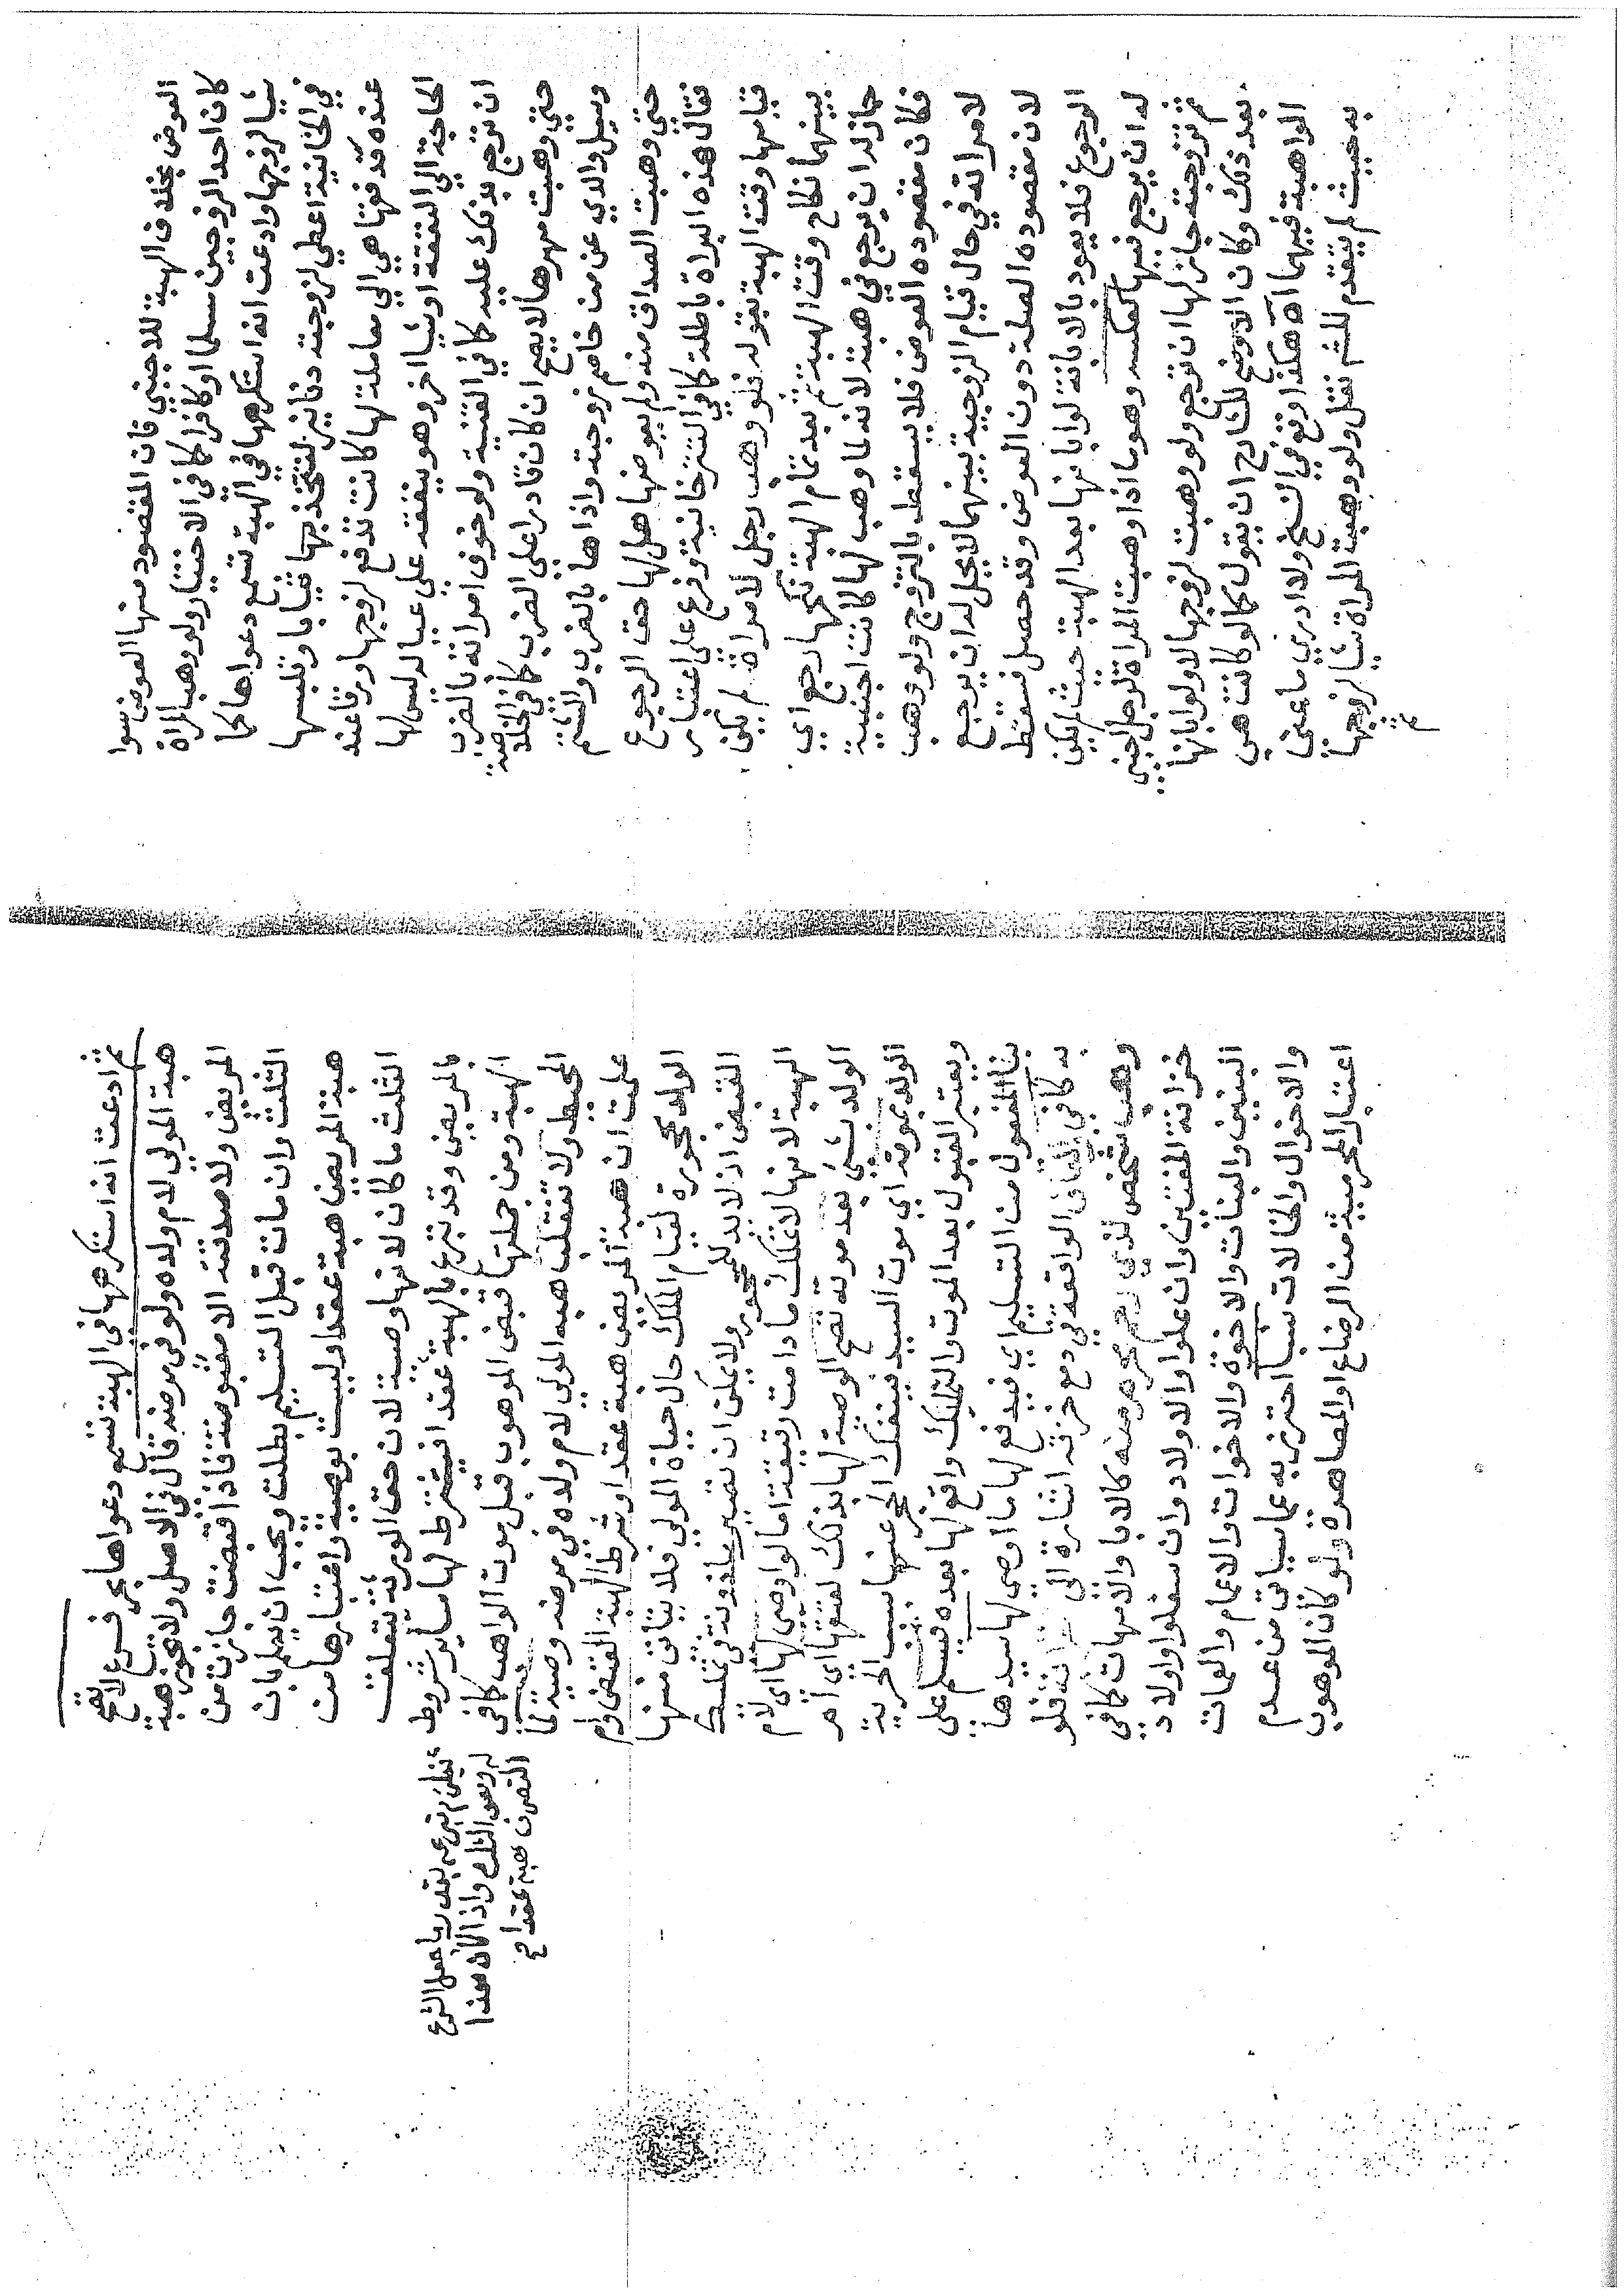 العوض بخلاف الهبة للاجنبي فان المقصود منها العوض سوا
كان احد الزوجين مسلما او كافرا كما في الاختيار ولو وهب المراة
شيا لزوجها وادعت انه استكرهها في الهبة تسمع دعواها كما
في الخانية اعطي لزوجته دنانير لتتخذ بها ثيابا وتلبسها
عنده فدفعتها هي الي معاملة لها كانت تدفع لزوجها ورقا عند
الحاجة الي النفقة او شيا اخر وهو ينفقه علي عياله ليس لها
ان ترجع بذلك عليه كما في القنية ولو خوف امراته بالضرب
حتي وهبت مهرها لا يصح ان كان قادرا علي الضرب كما في الخلاصة
وسيل والدي عن من خاصم زوجته واذاها بالضرب والشتم
حتي وهبت الصداق منه ولم يعوضها هل لها حق الرجوع
فقال هذه البراة باطلة كما في التترخانية وفرع علي اعتبار
قيامها وقت الهبة بقوله فلو وهب رجل لامراة لم يكن
بينهما نكاح وقت الهبة ثم بعد تمام الهبة نكحها رجع اي
جاز له ان يرجع في هبته لانه لما وهب لها كانت اجنبية
فكان مقصوده العوض فلا يسقط بالتزوج ولو وهب
لامراته في حال قيام الزوجية بينهما لا يحل له ان يرجع
لان مقصوده الصلة دون العوض وقد حصل فسقط
الرجوع فلا يعود بالابانة لو ابانها بعد الهبة حيث لم يكن
له ان يرجع فيها كعكسه وهو ما اذا وهبت المراة لرجل اجنبي
ثم تزوجته جاز لها ان ترجع ولو وهبت لزوجها لا ولو ابانها
بعد ذلك وكان الاوضح للشارح ان يقول كما لو كانت هي
الواهبة فيهما اه هكذا وقع في النسخ ولا ادري ما عني
به حيث لم يتقدم للشم نقل ولو وهبت المراة شيا لزوجها
ثم
ثم ادعت انه استكرهها في الهبة تسمع دعواها بحر فرع لا تصح
هبة المولي لام ولده ولو في مرضه قال في الاصل ولا تجوز هبة
المريض ولا صدقته الا مقبوضة فاذا قبضت جازت من
الثلث وان مات قبل التسليم بطلت ويجب ان يعلم بان
هبة المريض هبة عقدا وليست بوصية واعتبارها من
الثلث ما كان لانها وصية لان حق الورثة تتعلق
بالمريض وقد تبرع بالهبة عقدا فيشترط لها سائر شروط
الهبة ومن جملتها قبض الموهوب قبل موت الواهب كما في
المحيط ولا تنقلب هبه المولي لام ولده في مرضه وصية لما
علمت ان هبة المريض هبة عقدا وشرط الهبة القبض وام
الولد محجورة لقيام الملك حال حياة المولي فلا يتاتي منها
القبض اذ لا يد للمحجور ولا يمكن ان تصير ماذونة في تملك
الهبة لانها لا تملك ما دامت رقيقة اما لو اوصي لها اي لام
الولد بشيء بعد موته تصح الوصية لها بذلك لعتقها اي ام
الولد بموته اي موت السيد فينفك الحجر عنها بسبب الحرية
ويعتبر القبول بعد الموت والتمليك واقع لها بعده فيسلم علي
بنا المفعول من التسليم اي فيدفع لها ما اوصي لها سيدها
به كما في الواقعة
وهب شخص لذي رحم محرم منه كالابا والامهات كما في
خزانة المفتين وان علوا والاولاد وان سفلوا واولاد
البنين والبنات والاخوة والاخوات والاعمام والعمات
والاخوال والخالات نسبا احترز به عما سياتي من عدم
اعتبار المحرمية من الرضاع او المصاهرة ولو كان الموهوب